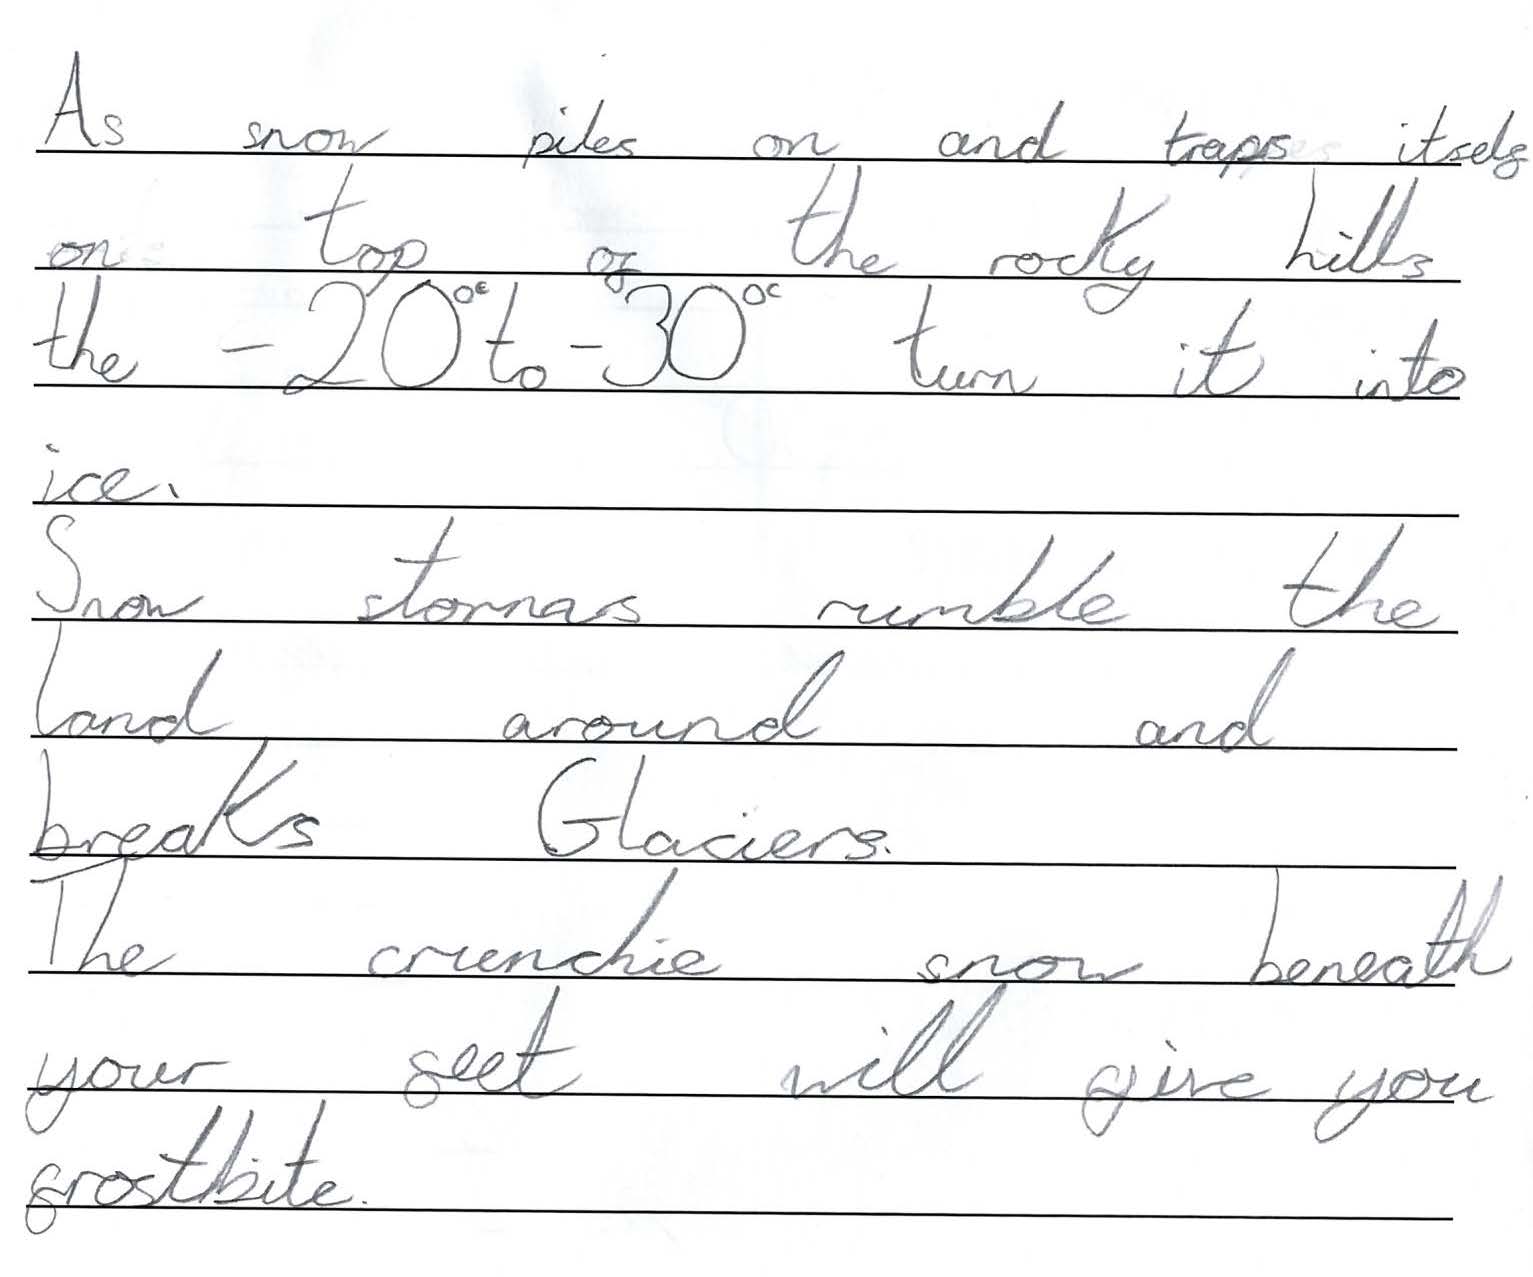 As snow piles on and traps itself
on top of the rocky hills
the -20°c to -30°c turn it into
ice.
Snow storms rumble the
land around and
breaks Glaciers.
The crunchie snow beneath
your feet will give you
frostbite.